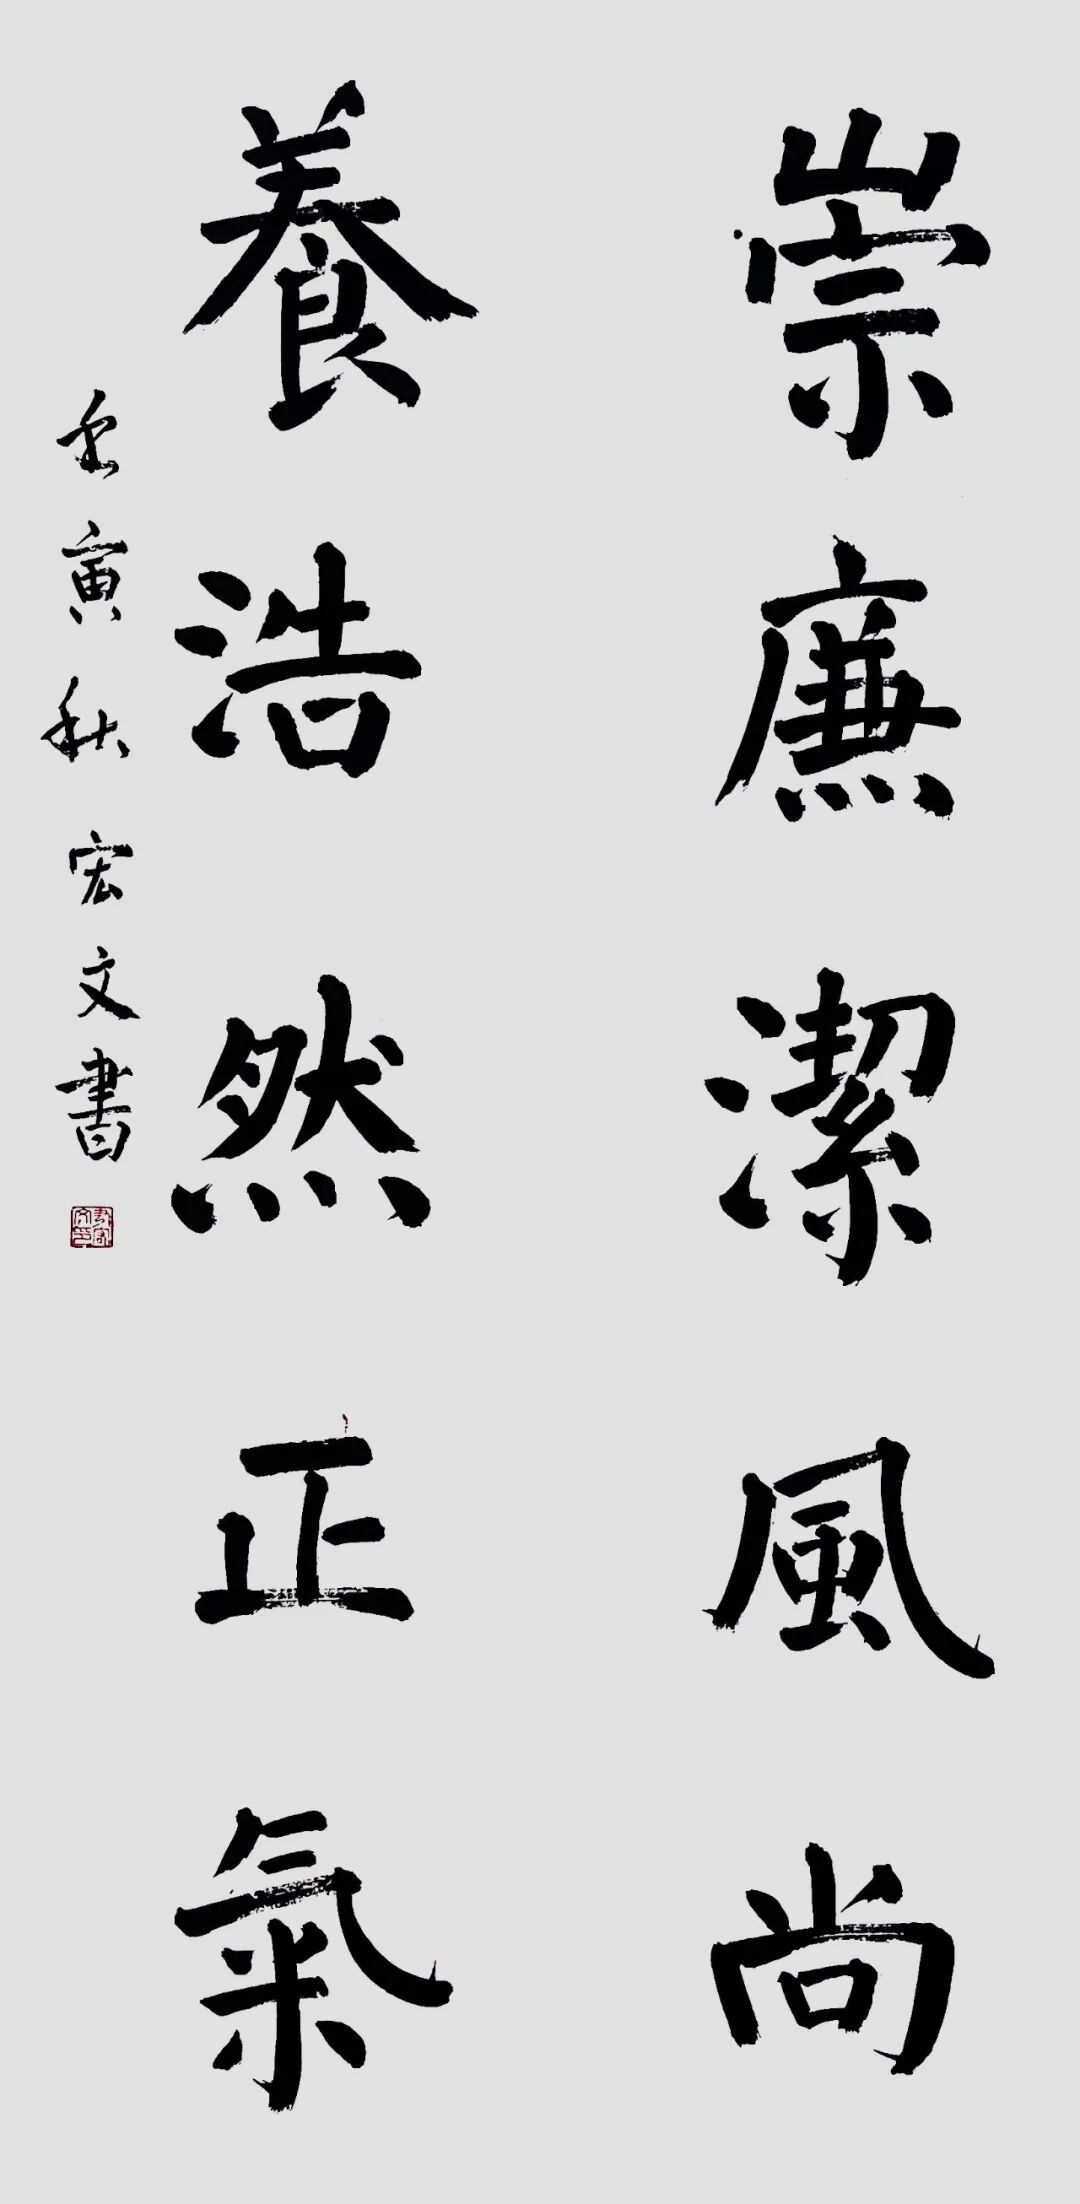 崇廉潔風尚
養浩然正氣
壬寅秋宏文書